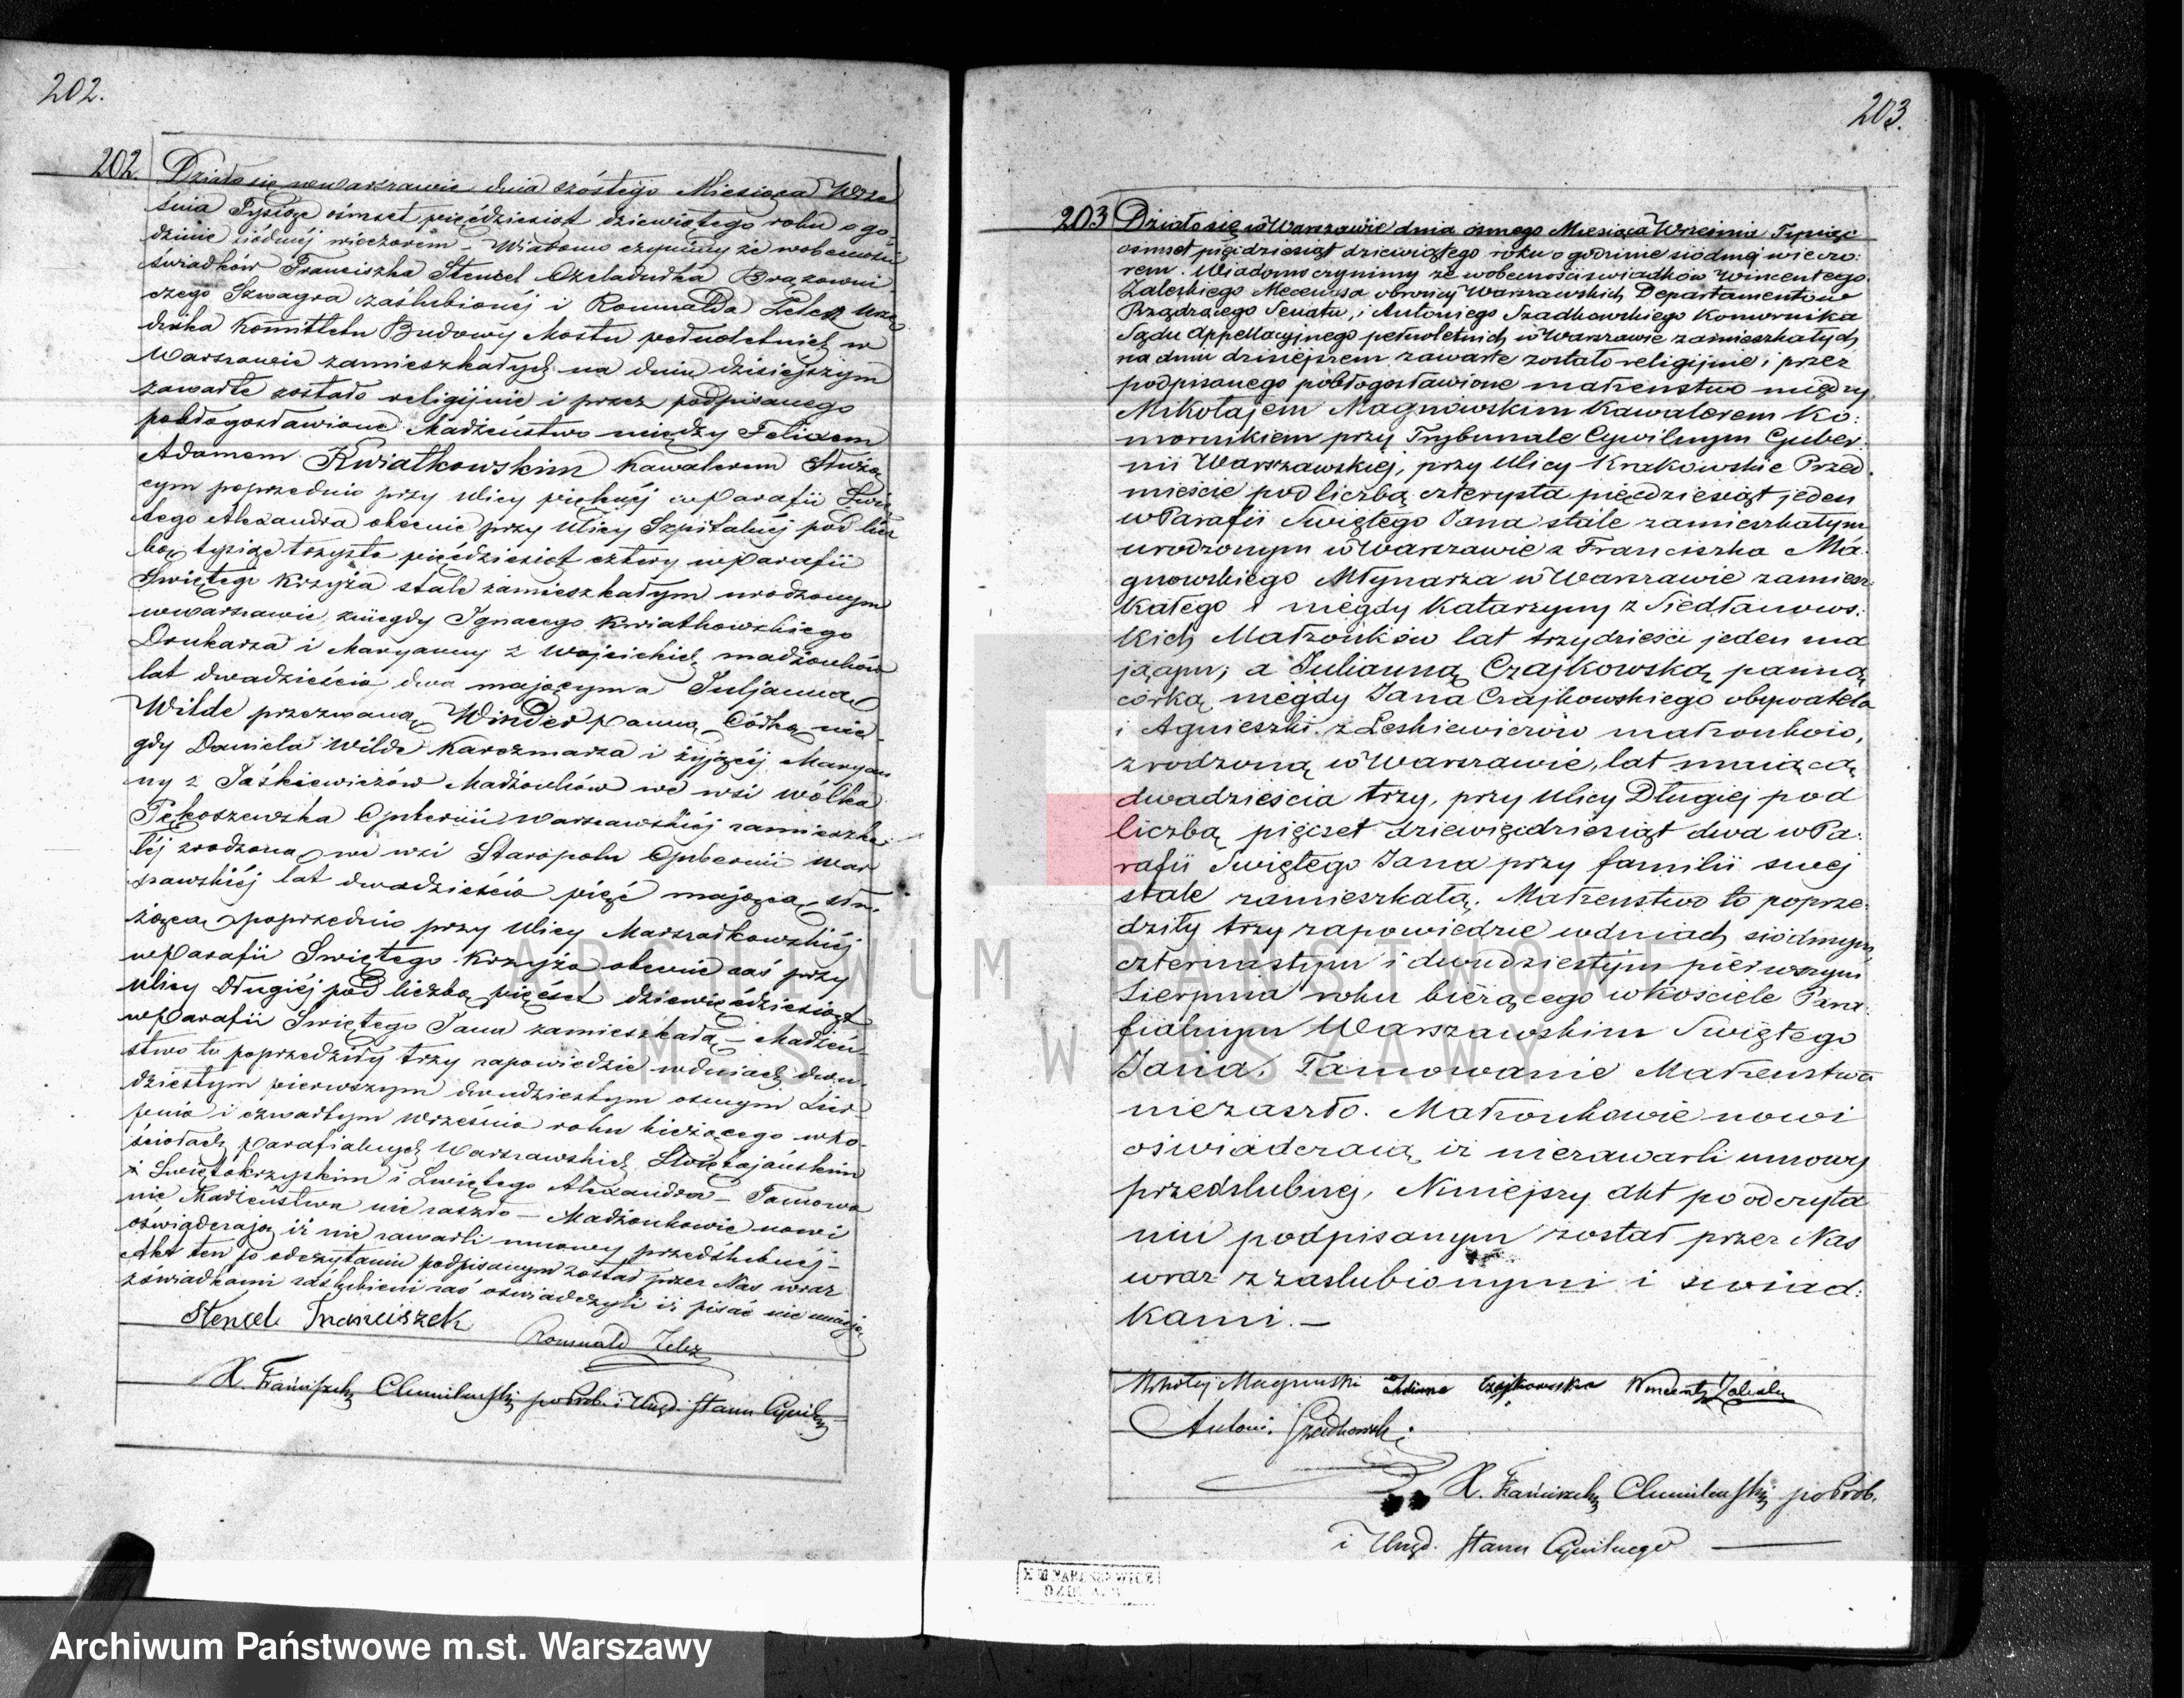 202.
202. Działo się w Warszawie dnia szóstego Miesiąca Wrze
śnia Tysiąc ośmset pięćdziesiąt dziewiątego roku o go-
dzinie siódmej wieczorem – Wiadomo czyniemy że w obecności
świadków Franciszka Stencel Czeladnika Brązowni
czego Szwagra zaślubionéj i Romualda Zelez Urzę
dnika Komitetu Budowy Mostu pełnoletnich w
Warszawie zamieszkałych na dniu dzisiejszym
zawarte zostało religijnie i przez podpisanego
pobłogosławione Małżeństwo między Felixem
Adamem Kwiatkowskim Kawalerem Służą
cym poprzednio przy Ulicy pięknéj w Parafii Świę
tego Alexandra obecnie przy Ulicy Szpitalnéj pod licz
bą tysiąc trzysta pięćdziesiąt cztery w Parafii
Świętego Krzyża stale zamieszkałym urodzonym
w Warszawie, z niegdy Ignacego Kwiatkowskiego
Drukarza i Maryanny z Wojcickich małżonków
lat dwadzieścia dwa mającym a Juljanną
Wilde przezwaną Winder panną, Córką nie-
gdy Daniela Wilde Karczmarza i żyjącéj Maryan
ny z Jaśkiewiczów Małżonków we wsi Wólka
Pękoszewska Gubernii Warszawskiéj zamieszka-
łéj zrodzoną we wsi Staropolu Gubernii War
szawskiéj lat dwadzieścia pięć mającą, słu-
żącą poprzednio przy Ulicy Marszałkowskiéj
w Parafii Świętego Krzyża obecnie zaś przy
Ulicy Długiéj pod liczbą pięćset dziewięćdziesiąt
w Parafii Świętego Jana zamieszkałą – Małżeń-
stwo to poprzedziły trzy zapowiedzie w dniach dwu-
dziestym pierwszym dwudziestym osmym Sier
pnia i czwartym Września roku bieżącego w ko-
ściołach parafialnych Warszawskich Świętojańskim
i Świętokrzyskim i Świętego Alexandra – Tamowa
nie Małżeństwa nie zaszło – Małżonkowie nowi
oświadczają iż nie zawarli umowy przedślubnéj –
Akt ten po odczytaniu podpisanym został przez Nas wraz
z świadkami zaślubieni zaś oświadczyli iż pisać nie umieją
Stencel Franciszek
Romuald Zelez
X. Franciszek Chmielewski po Prob. i Urzęd. Stanu Cywiln
203.
203 Działo się w Warszawie dnia ósmego Miesiąca Września Tysiąc
ośmset pięćdziesiąt dziewiątego roku o godzinie siódmej wieczo:
rem. Wiadomo czynimy że w obecności świadków Wincentego
Zaleskiego Mecenasa obrońcy Warszawskich Departamentów
Rządzącego Senatu, i Antoniego Szadkowskiego Komornika
Sądu Appellacyjnego pełnoletnich w Warszawie zamieszkałych
na dniu dzisiejszem zawarte zostało religijnie i przez
podpisanego pobłogosławione małżeństwo między
Mikołajem Magnowskim Kawalerem Ko:
mornikiem przy Trybunale Cywilnym Guber
nii Warszawskiej, przy Ulicy Krakowskie Przed
mieście pod liczbą czterysta pięćdziesiąt jeden
w Parafii Świętego Jana stale zamieszkałym
urodzonym w Warszawie z Franciszka Ma-
gnowskiego Młynarza w Warszawie zamiesz:
kałego i niegdy Katarzyny z Siedlanows:
kich Małżonków lat trzydzieści jeden ma
jącym; a Julianną Czajkowską panną
córką niegdy Jana Czajkowskiego obywatela
i Agnieszki z Leskiewiczów małżonków,
zrodzoną w Warszawie, lat mającą
dwadzieścia trzy, przy Ulicy Długiej pod
liczbą pięćset dziewięćdziesiąt dwa w Pa:
rafii Świętego Jana przy familii swej
stale zamieszkałą. Małżeństwo to poprze:
dziły trzy zapowiedzie w dniach siódmym,
czternastym i dwudziestym pierwszym
Sierpnia roku bieżącego w kościele Para:
fialnym Warszawskim Świętego
Jana. Tamowanie Małżeństwa
nie zaszło. Małżonkowie nowi
oświadczają iż niezawarli umowy
przedślubnej, Niniejszy akt po odczyta
niu podpisanym został przez Nas
wraz z zaślubionymi i świad:
kami. –
Mikołaj Magnuski Julianna Czajkowska Wincenty Zaleski
Antoni Szadkowski
X. Franciszek Chmielewski po Prob.
i Urzęd. Stanu Cywilnego
ARCHIWUM PAŃSTWOWE
M. ST. WARSZAWY
Archiwum Państwowe m.st. Warszawy